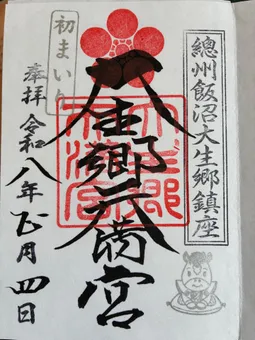 總州飯沼大生郷鎮座
大生郷天満宮
初まいり
奉拝
令和八年正月四日